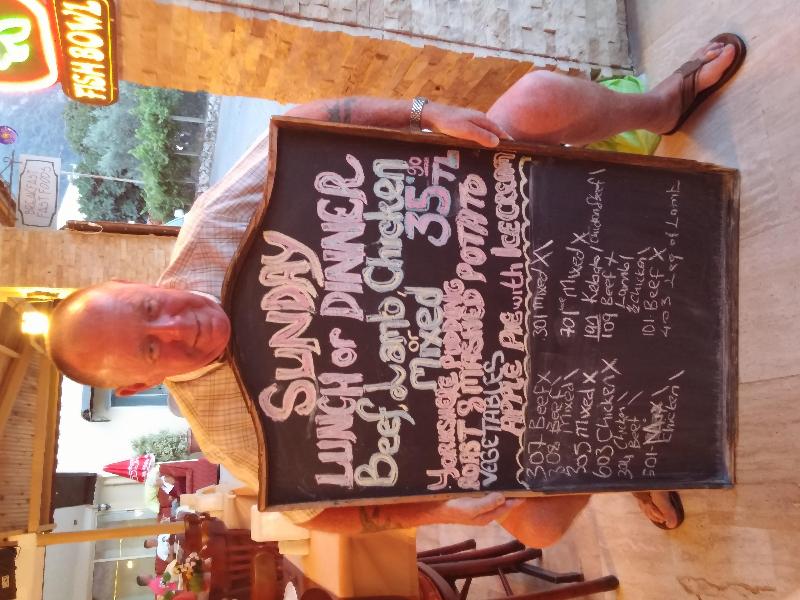 FISH BOWL
BREAKFAST
FAST FOODS
SUNDAY
LUNCH or DINNER
Beef, Lamb, Chicken
or
Mixed 35.90 TL
YORKSHIRE PUDDING
ROAST & MASHED POTATO
VEGETABLES
APPLE PIE with ICE CREAM
307 Beef X
308 Beef \
Mixed \
205 Mixed X
603 Chicken X
Chicken \
Beef \
501
Chicken \
301 Mixed X \
701 Mixed X
Kebabs / Chicken & Beef \
109 Beef X
Lamb \
& Chicken \
101 Beef X
403 Leg of Lamb